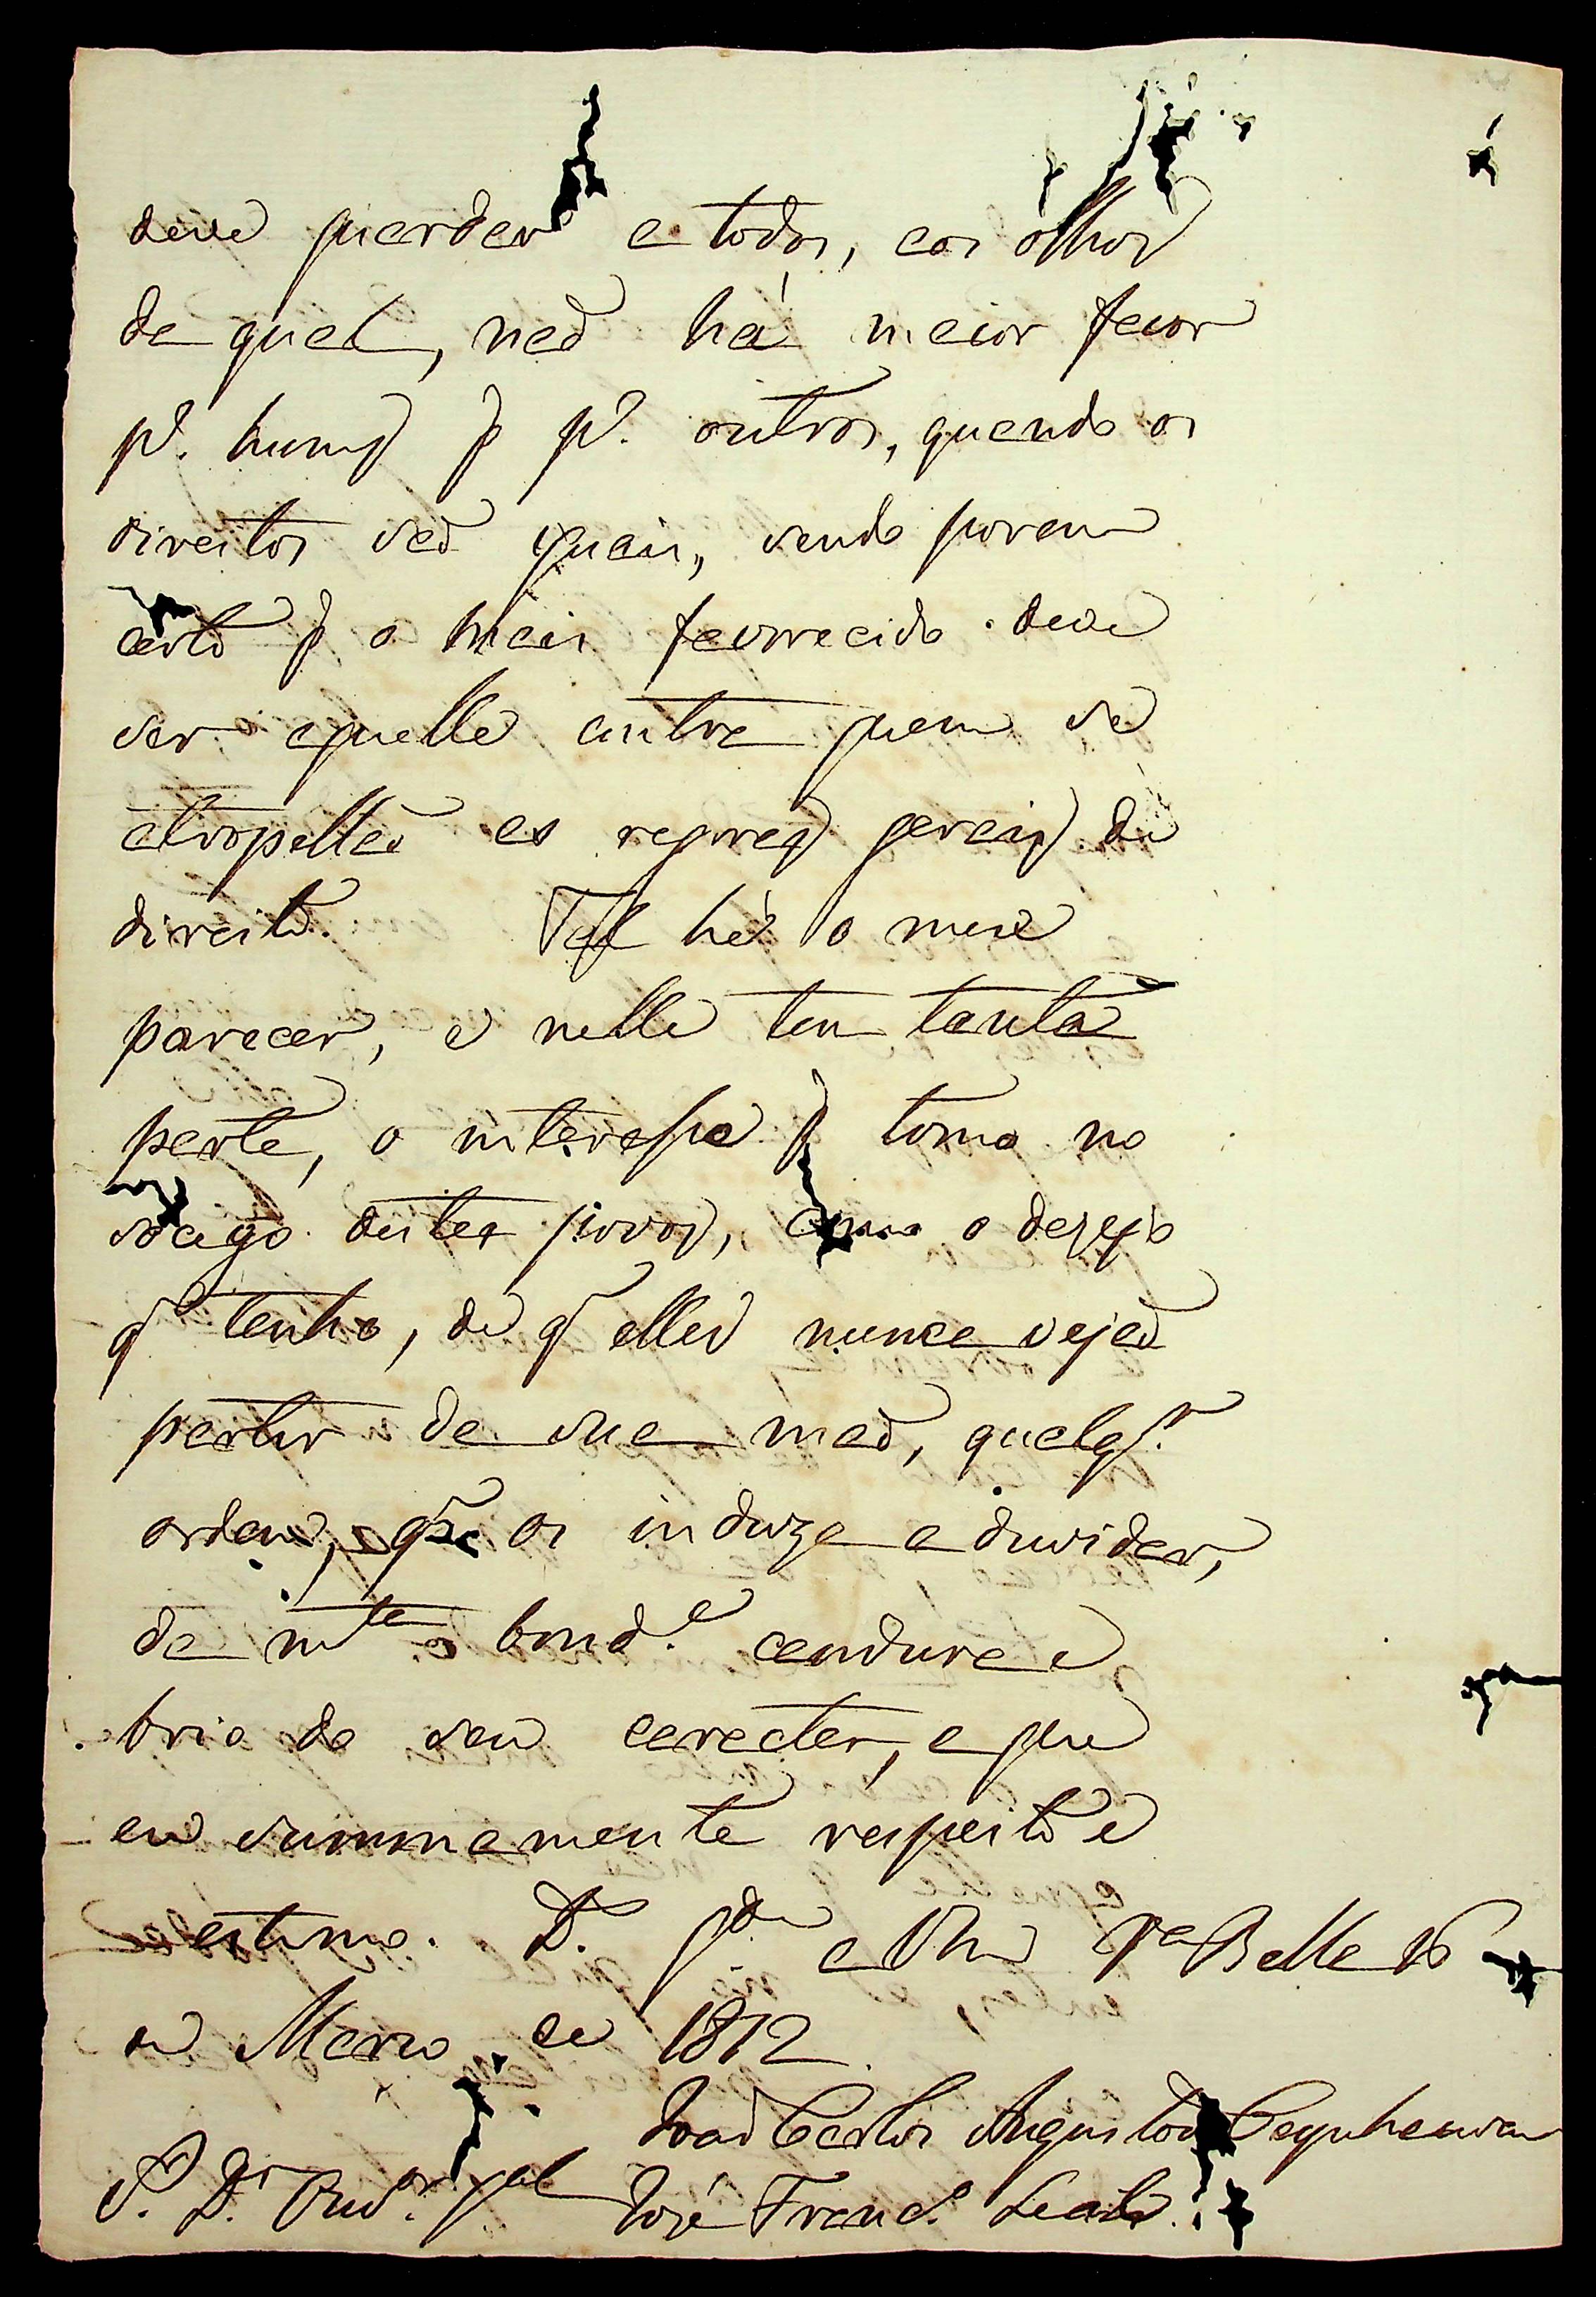 deve guardar a todos, aos olhos
da qual, naõ há maior favor
p.ª huns q̃ p.ª outros, quando os
direitos saõ iguais, sendo porem
certo q̃ o mais favorecido deve
ser aquelle contra quem se
atropellaõ as regras geraes de
direito. Tal hé o meu
parecer, e nelle tem tanta
parte, o interesse q̃ tomo no
socego destes povos, como o dezejo
q̃ tenho, de q̃ elles nunca vejaõ
partir de sua maõ, qualq.r
ordem, q̃ os induza a duvidar,
da m.ta bond.e candura e
brio do seu caracter, a que
eu summamente respeito e
estimo. D.s g.de a Vm.ce V.a Bella 16
de Março de 1812
Joaõ Carlos Augusto d'Oeynhausen
S.r D.r Ouv.or g.al José Franc.o Leal.